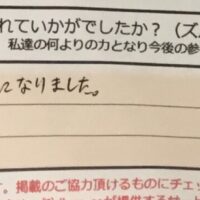 れていかがでしたか？（ズ
私達の何よりの力となり今後の参
になりました。
す。掲載のご協力頂けるものにチェッ